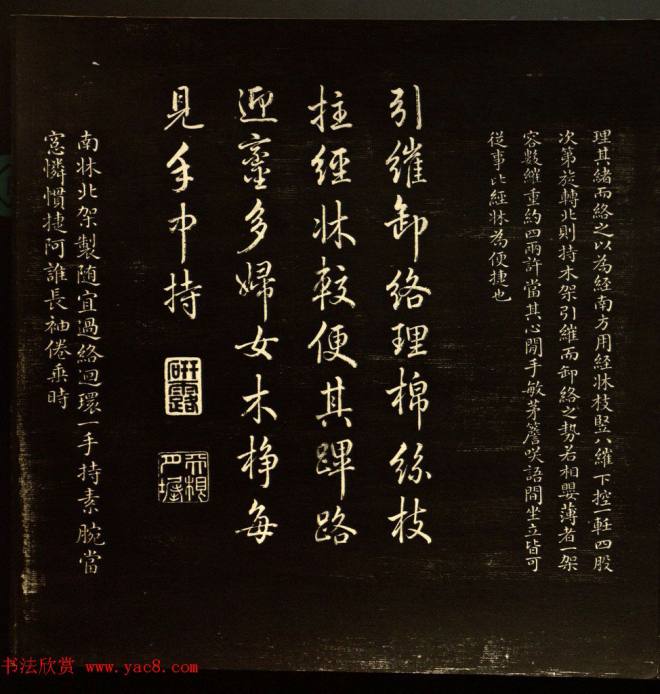 理其緒而絡之以為經南方用經牀枝竪八維下控一軠四股
次第旋轉北則持木架引維而卸絡之勢若相嬰薄者一架
容數維重約四兩許當其心閒手敏茅簷咲語間坐立皆可
從事比經牀為便捷也
引維卸絡理棉絲枝
拄經牀較便其蹕路
迎鑾多婦女木桻每
見手中持
研露
南牀北架製隨宜過絡迴環一手持素腕當
窓憐慣捷阿誰長袖倦乗時
书法欣赏 www.yac8.com